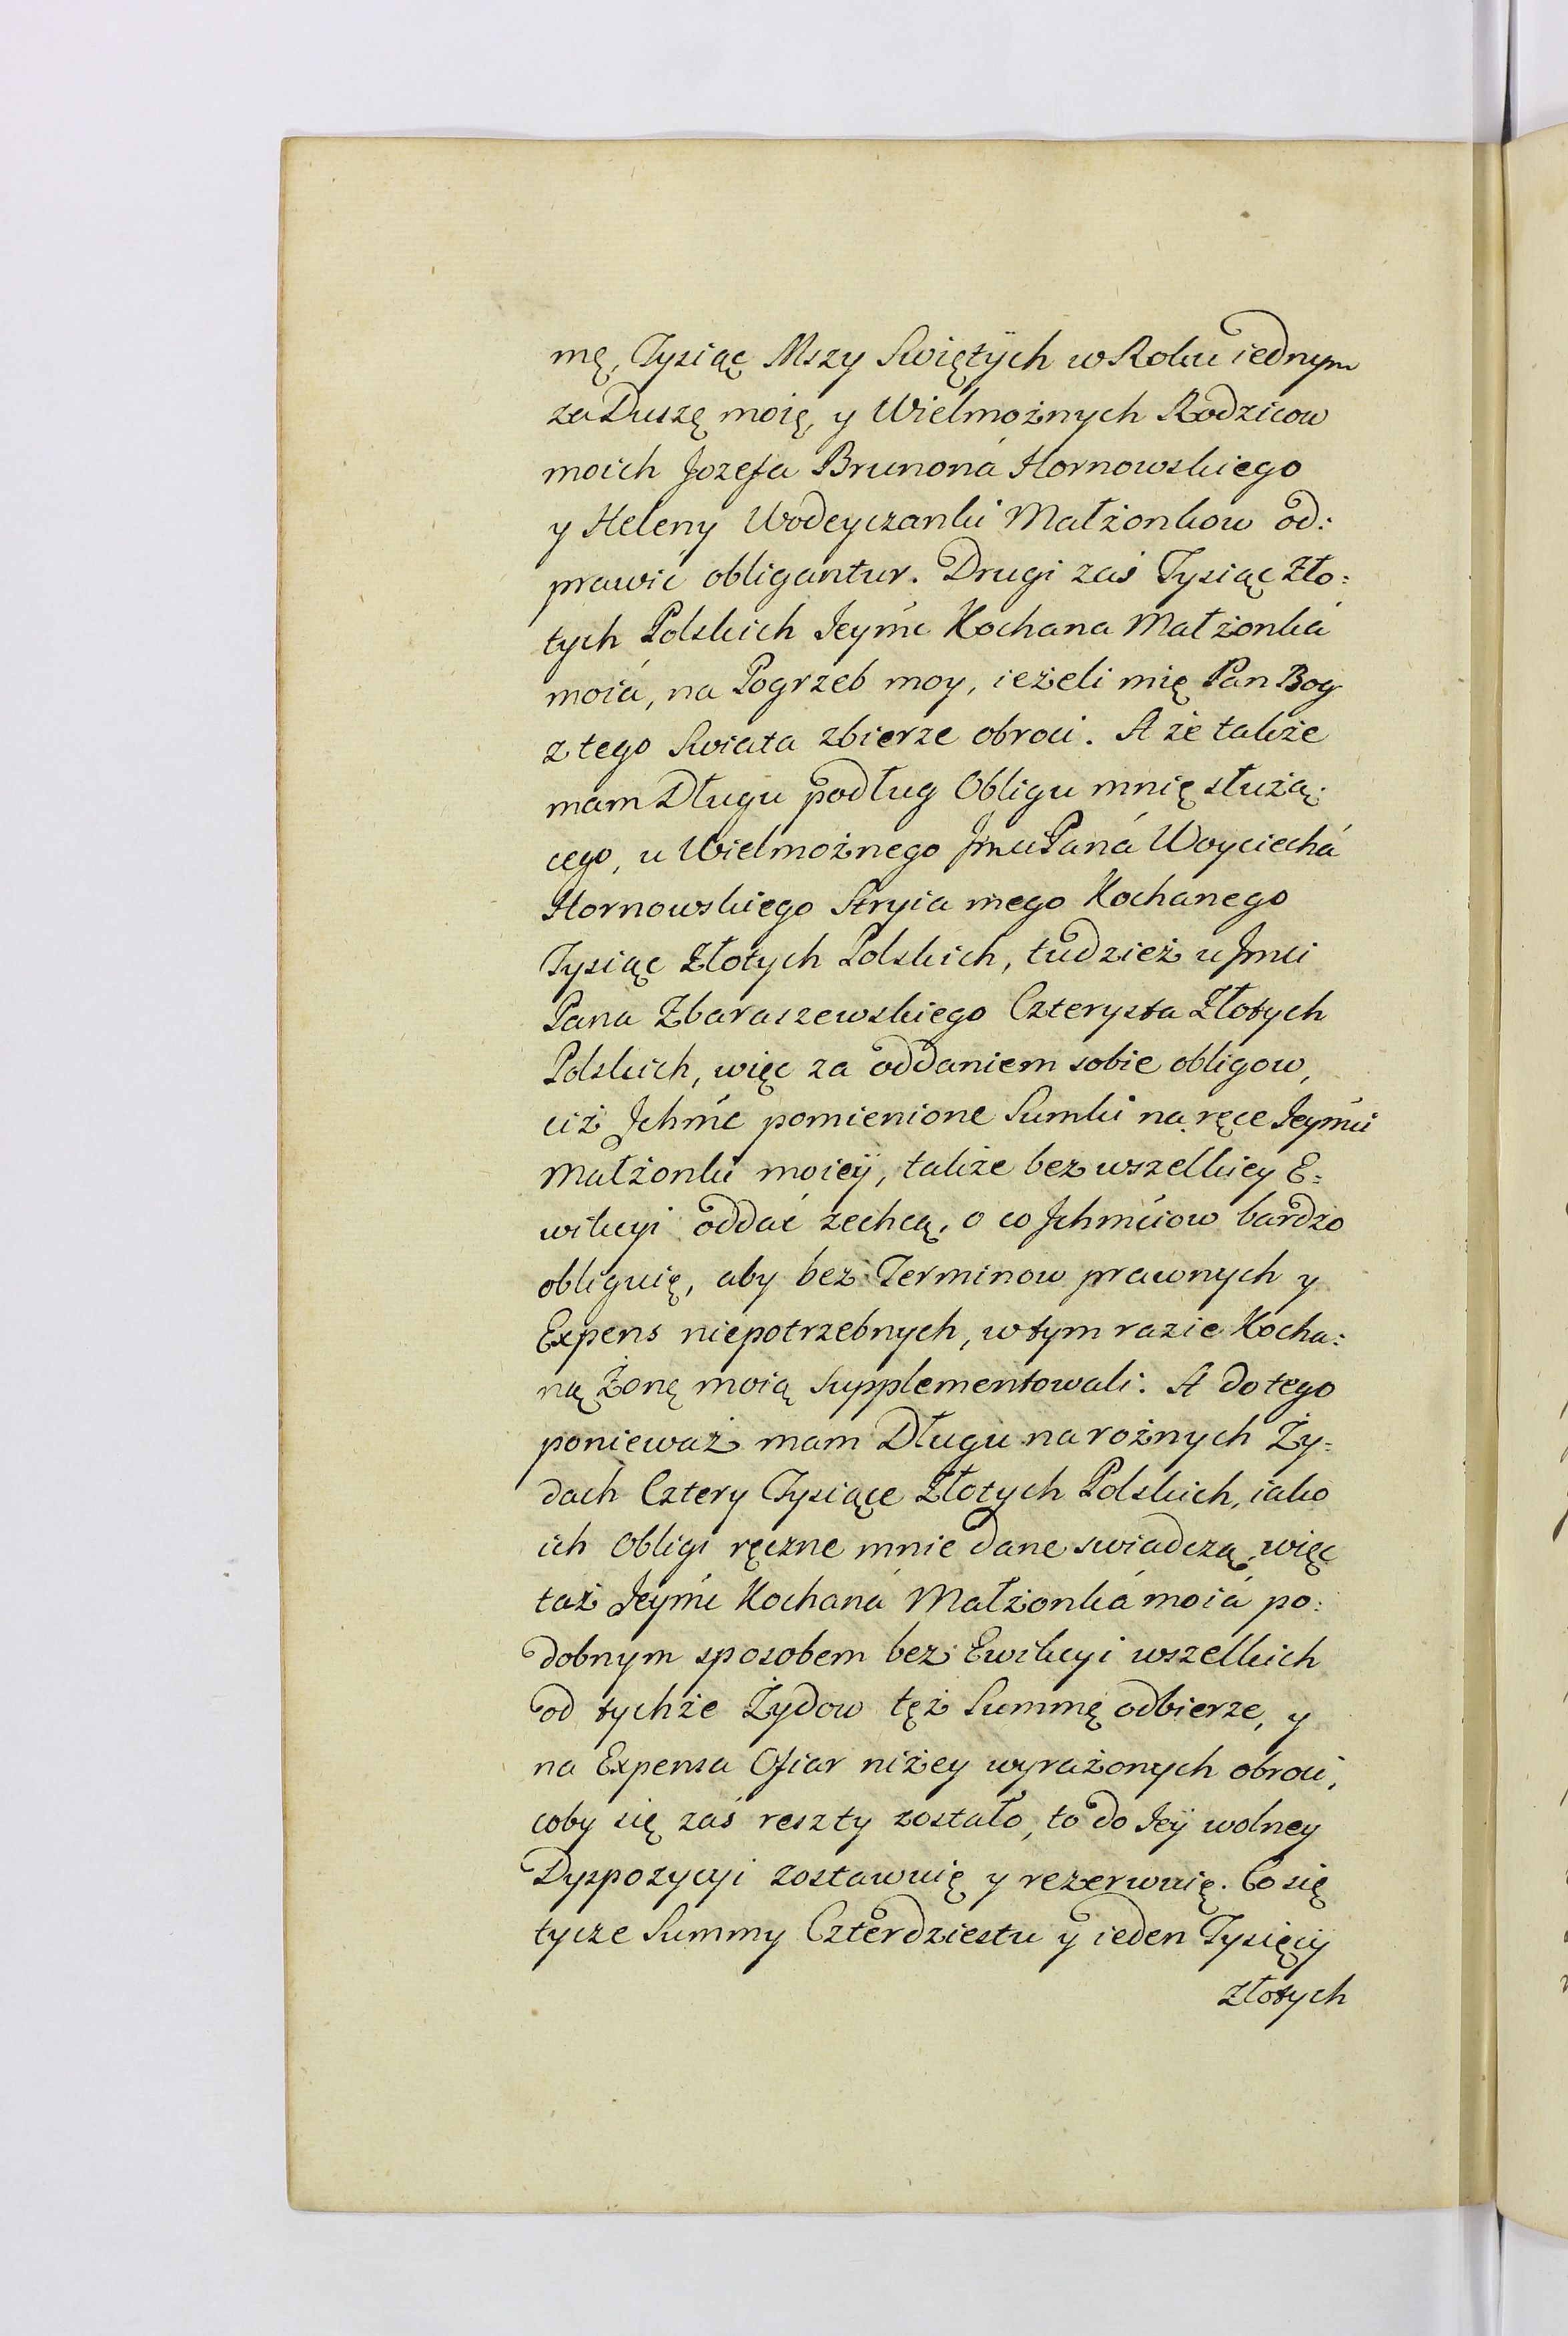 mę, Tysiąc Mszy Swiętych w Roku iednym
za Duszę moię, y Wielmożnych Rodzicow
moich Jozefa Brunoná Hornowskiego
y Heleny Wodeyczanki Małżonkow od:
prawić obligantur. Drugi zaś Tysiąc Zło:
tych Polskich Jeymć Kochana Małżonká
moiá, na Pogrzeb moy, ieżeli mię Pan Bog
z tego Swiata zbierze obroci. A że także
mam Długu podług Obligu mnię służą:
cego, u Wielmożnego Jmci Paná Woyciechá
Hornowskiego Stryia mego Kochanego
Tysiąc Złotych Polskich, tudzież u Jmci
Pana Zbaraszewskiego Czterysta Złotych
Polskich, więc za oddaniem sobie obligow,
ciż Jchmć pomienione Sumki na ręce Jeymći
Małżonki moiey, także bez wszelkiey E:
wikcyi oddać zechcą, o co Jchmćiow bardzo
obliguię, aby bez Terminow prawnych y
Expens niepotrzebnych, w tym razie Kocha:
ną Żonę moią Supplementowali. A do tego
ponieważ mam Długu na rożnych Ży:
dach Cztery Tysiące Złotych Polskich, iako
ich Obligi ręczne mnie dane swiadczą, więc
taż Jeymć Kochaná Małżonká moiá po:
dobnym sposobem bez Ewikcyi wszelkich
od tychże Żydow tęż Summę odbierze, y
na Expensa Ofiar niżey wyrażonych obroci,
coby się zaś reszty zostało, to do Jey wolney
Dyspozycyi zostawuię y rezerwuię. Co się
tycze Summy Czterdziestu y ieden Tysięcy
Złotych